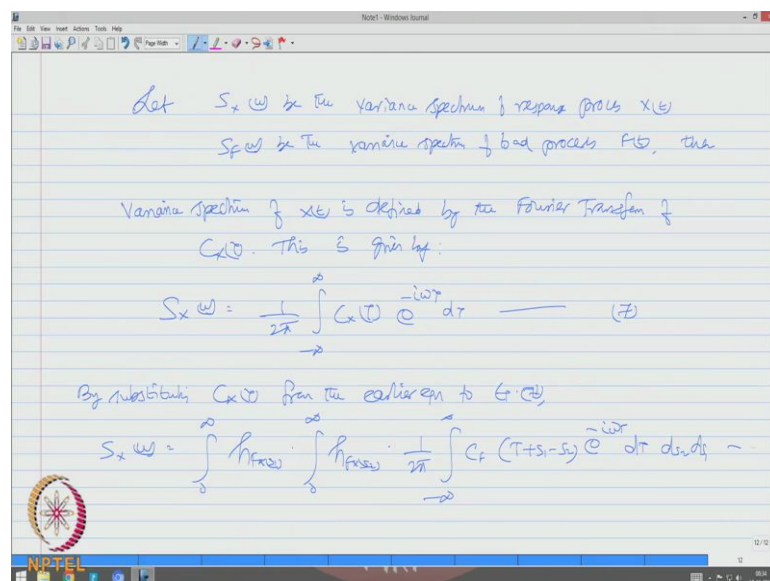 Note1 - Windows Journal
File Edit View Insert Actions Tools Help
Page Width
Let Sx(ω) be the variance spectrum of response process x(t)
SF(ω) be the variance spectrum of load process F(t), then
Variance spectrum of x(t) is defined by the Fourier Transform of
Cx(τ). This is given by:
Sx(ω) = 1/2π ∫_{-∞}^{∞} Cx(τ) e^{-iωτ} dτ —— (7)
By substituting Cx(τ) from the earlier eqn to Eq. (7),
Sx(ω) = ∫_0^∞ h_{Fx(s1)} · ∫_0^∞ h_{Fx(s2)} · 1/2π ∫_{-∞}^{∞} CF (τ+s1-s2) e^{-iωτ} dτ ds2 ds1 —
NPTEL
12/12
12